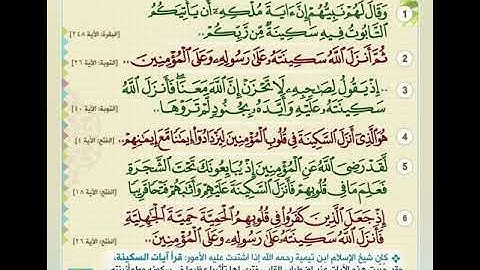 1
وَقَالَ لَهُمْ نَبِيُّهُمْ إِنَّ ءَايَةَ مُلْكِهِ أَن يَأْتِيَكُمُ
التَّابُوتُ فِيهِ سَكِينَةٌ مِّن رَّبِّكُمْ..
[البقرة: الآية ٢٤٨]
2
ثُمَّ أَنزَلَ اللَّهُ سَكِينَتَهُ عَلَىٰ رَسُولِهِ وَعَلَى الْمُؤْمِنِينَ..
[التوبة: الآية ٢٦]
3
..إِذْ يَقُولُ لِصَاحِبِهِ لَا تَحْزَنْ إِنَّ اللَّهَ مَعَنَا فَأَنزَلَ اللَّهُ
سَكِينَتَهُ عَلَيْهِ وَأَيَّدَهُ بِجُنُودٍ لَّمْ تَرَوْهَا..
[التوبة: الآية ٤٠]
4
هُوَ الَّذِي أَنزَلَ السَّكِينَةَ فِي قُلُوبِ الْمُؤْمِنِينَ لِيَزْدَادُوا إِيمَانًا مَّعَ إِيمَانِهِمْ..
[الفتح: الآية ٤]
5
لَّقَدْ رَضِيَ اللَّهُ عَنِ الْمُؤْمِنِينَ إِذْ يُبَايِعُونَكَ تَحْتَ الشَّجَرَةِ
فَعَلِمَ مَا فِي قُلُوبِهِمْ فَأَنزَلَ السَّكِينَةَ عَلَيْهِمْ وَأَثَابَهُمْ فَتْحًا قَرِيبًا
[الفتح: الآية ١٨]
6
إِذْ جَعَلَ الَّذِينَ كَفَرُوا فِي قُلُوبِهِمُ الْحَمِيَّةَ حَمِيَّةَ الْجَاهِلِيَّةِ
فَأَنزَلَ اللَّهُ سَكِينَتَهُ عَلَىٰ رَسُولِهِ وَعَلَى الْمُؤْمِنِينَ..
[الفتح: الآية ٢٦]
كان شيخ الإسلام ابن تيمية رحمه الله إذا اشتدت عليه الأمور: قرأ آيات السكينة،